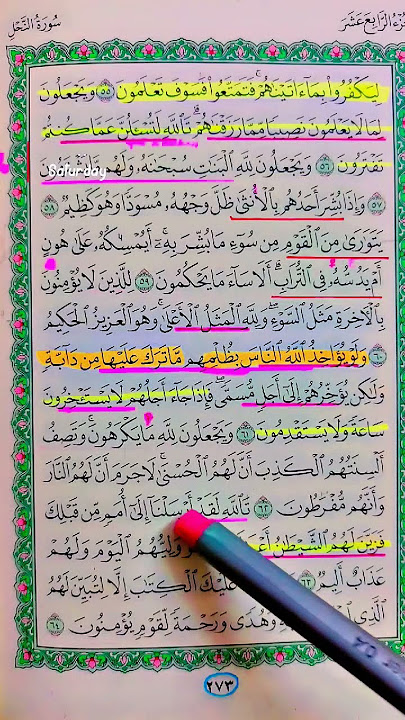 الرَّابِعَ عَشَرَ سُورَةُ النَّحْلِ
لِيَكْفُرُوا۟ بِمَآ ءَاتَيْنَٰهُمْ ۚ فَتَمَتَّعُوا۟ ۖ فَسَوْفَ تَعْلَمُونَ ٥٥ وَيَجْعَلُونَ
لِمَا لَا يَعْلَمُونَ نَصِيبًا مِّمَّا رَزَقْنَٰهُمْ ۗ تَٱللَّهِ لَتُسْـَٔلُنَّ عَمَّا كُنتُمْ
تَفْتَرُونَ ٥٦ وَيَجْعَلُونَ لِلَّهِ ٱلْبَنَٰتِ سُبْحَٰنَهُۥ ۙ وَلَهُم Saturday
٥٧ وَإِذَا بُشِّرَ أَحَدُهُم بِٱلْأُنثَىٰ ظَلَّ وَجْهُهُۥ مُسْوَدًّا وَهُوَ كَظِيمٌ ٥٨
يَتَوَٰرَىٰ مِنَ ٱلْقَوْمِ مِن سُوٓءِ مَا بُشِّرَ بِهِۦٓ ۚ أَيُمْسِكُهُۥ عَلَىٰ هُونٍ
أَمْ يَدُسُّهُۥ فِى ٱلتُّرَابِ ۗ أَلَا سَآءَ مَا يَحْكُمُونَ ٥٩ لِلَّذِينَ لَا يُؤْمِنُونَ
بِٱلْـَٔاخِرَةِ مَثَلُ ٱلسَّوْءِ ۖ وَلِلَّهِ ٱلْمَثَلُ ٱلْأَعْلَىٰ ۚ وَهُوَ ٱلْعَزِيزُ ٱلْحَكِيمُ
٦٠ وَلَوْ يُؤَاخِذُ ٱللَّهُ ٱلنَّاسَ بِظُلْمِهِم مَّا تَرَكَ عَلَيْهَا مِن دَآبَّةٍ
وَلَٰكِن يُؤَخِّرُهُمْ إِلَىٰٓ أَجَلٍ مُّسَمًّى ۖ فَإِذَا جَآءَ أَجَلُهُمْ لَا يَسْتَـْٔخِرُونَ
سَاعَةً ۖ وَلَا يَسْتَقْدِمُونَ ٦١ وَيَجْعَلُونَ لِلَّهِ مَا يَكْرَهُونَ ۚ وَتَصِفُ
أَلْسِنَتُهُمُ ٱلْكَذِبَ أَنَّ لَهُمُ ٱلْحُسْنَىٰ ۖ لَا جَرَمَ أَنَّ لَهُمُ ٱلنَّارَ
وَأَنَّهُم مُّفْرَطُونَ ٦٢ تَٱللَّهِ لَقَدْ أَرْسَلْنَآ إِلَىٰٓ أُمَمٍ مِّن قَبْلِكَ
فَزَيَّنَ لَهُمُ ٱلشَّيْطَٰنُ وَلِيُّهُمُ ٱلْيَوْمَ وَلَهُمْ
عَذَابٌ أَلِيمٌ ٦٣ عَلَيْكَ ٱلْكِتَٰبَ إِلَّا لِتُبَيِّنَ لَهُمُ
ٱلَّذِى وَهُدًى وَرَحْمَةً لِّقَوْمٍ يُؤْمِنُونَ ٦٤
٢٧٣